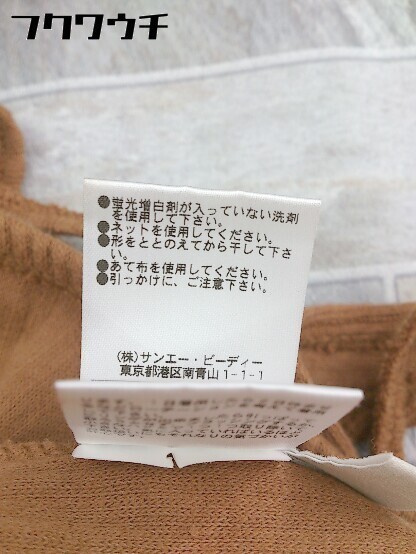 フクワウチ
●蛍光増白剤が入っていない洗剤
を使用して下さい。
●ネットを使用してください。
●形をととのえてから干して下さ
い。
●あて布を使用してください。
●引っかけに、ご注意下さい。
(株)サンエー・ビーディー
東京都港区南青山1-1-1